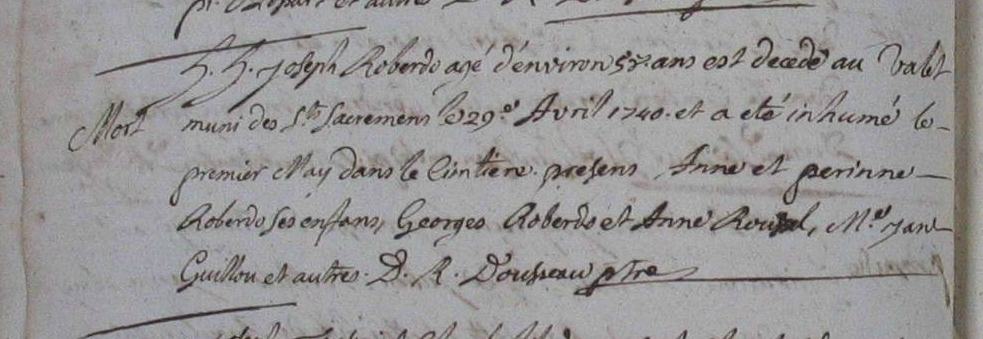 h. h. Joseph Roberdo agé d'environ 57. ans est decedé au Valet
Mort
muni des Sts Sacremens le 29e. Avril 1740. et a eté inhumé le
premier May dans le Cimtiere. presens Anne et perinne
Roberdo ses enfans, Georges Roberdo et Anne, Me. Jan
Guillou et autres. D. R. Dousseau ptre